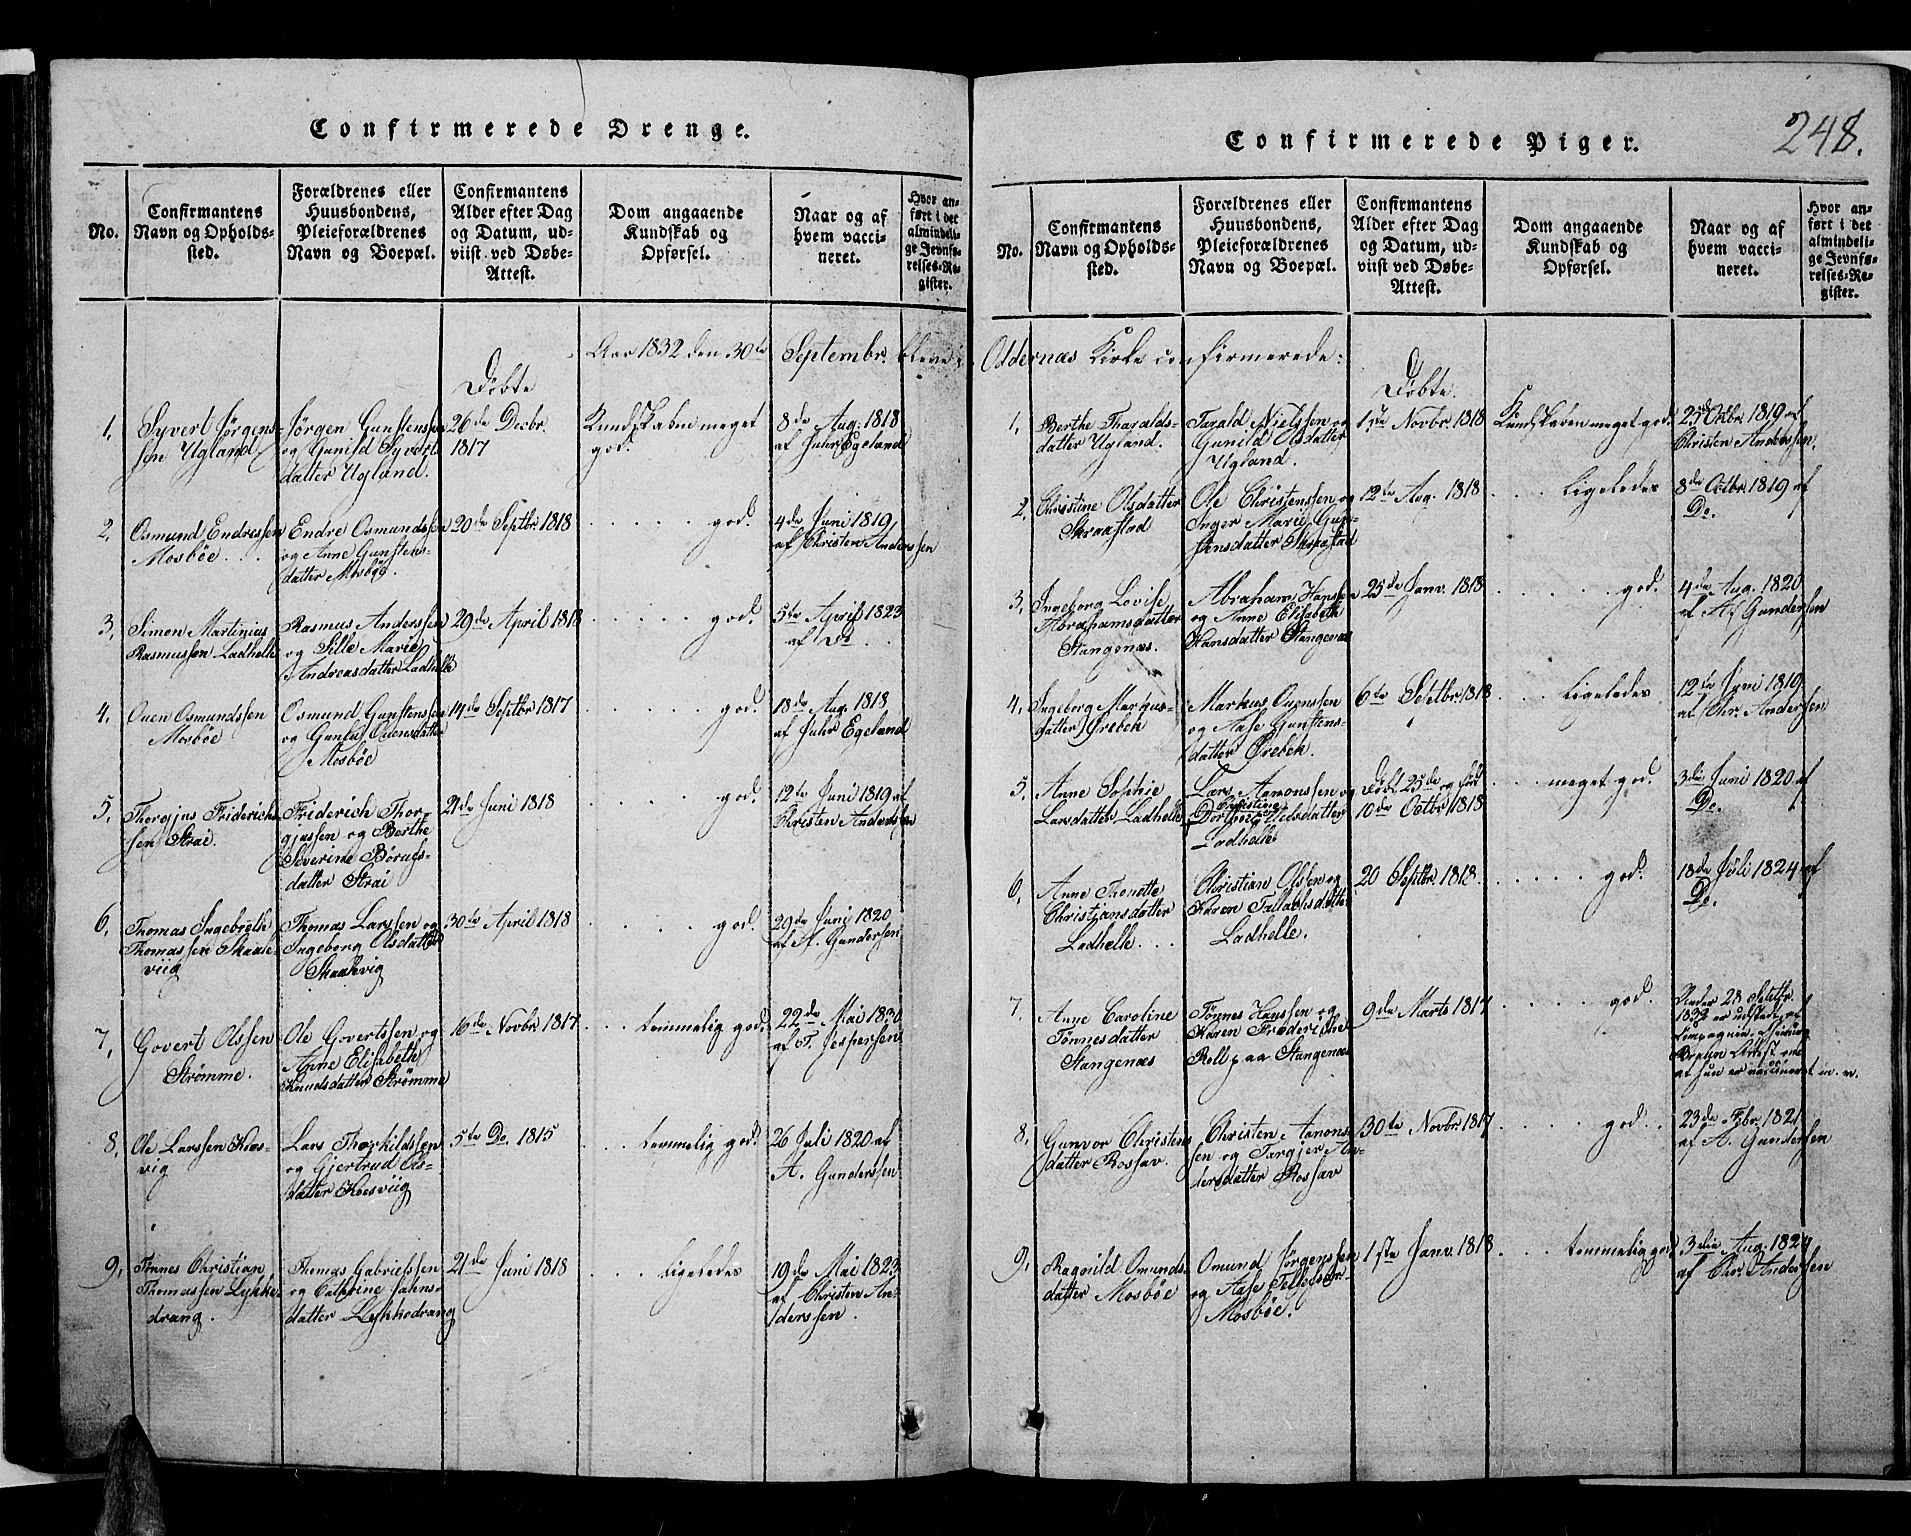 Confirmerede Drenge.
No.
Confirmantens
Navn og Opholds-
sted.
Forældrenes eller
Huusbondens,
Pleieforældrenes
Navn og Boepæl.
Confirmantens
Alder efter Dag
og Datum, ud-
viist ved Døbe-
Attest.
Dom angaaende
Kundskab og
Opførsel.
Naar og af
hvem vacci-
neret.
Hvor an-
ført i det
almindeli-
ge Jevnfø-
relses-Re-
gister.
Aar 1832 den 30te Septembr. bleve i
Døbte
1,
Syvert Jørgens-
sen Ugland
Jørgen Gunstenssen
og Gunild Syverts
datter Ugland.
26de Decbr.
1817
Kundskaben meget
god.
8de Aug. 1818
af Juler Egeland
2,
Osmund Endressen
Mosbøe . . .
Endre Osmundssen
og Anne Gunstens-
datter Mosbøe.
20de Septbr 1818
. . . . . god.
4de Juni 1819
af Christen Anderssen
3,
Simon Martinius
Rasmussen Ladhelle
Rasmus Anderssen
og Sille Marie
Andreasdatter Ladhelle
29de April 1818
. . . . . god.
5te April 1823
af Do .
4,
Ouen Osmundssen
Mosbøe
Osmund Gunstenssen
og Ouensdatter
Mosbøe
14de Septbr 1817
. . . . . god.
18de Aug. 1818
af Juler Egeland
5,
Thorgjus Friderichs-
sen Strai.
Friderich Thor-
gjussen og Berthe
Severine
datter Strai
21de Juni 1818
. . . . . god.
12te Juni 1819 af
Christen Anderssen
6,
Thomas Ingebreth
Thomassen Skaale-
viig
Thomas Larssen og
Ingeborg Olsdatter
Skaalevig
30te April 1818
. . . . god.
29de Juni 1820
af A. Gundersen
7,
Govert Olssen
Strømme.
Ole Govertssen og
Anne Elisabeth
Knudsdatter Strømme
16de Novbr 1817
. . . temmelig god.
22de Mai 1830
af T. Jespersen
8,
Ole Larssen Koes-
vig
Lars Thorkildssen
og Gjertrud Ols-
datter Koesviig
5te Do. 1815
. . . temmelig god.
26 Juli 1820 af
A. Gunderssen
9,
Tønnes Christian
Thomassen Lykke-
drang.
Thomas Gabrielssen
og Cathrine Jahns-
datter Lykkedrang
21de Juni 1818
. . . Ligeledes
19de Mai 1823
af Christen An-
derssen.
Confirmerede Piger.
248.
No.
Confirmantens
Navn og Opholds-
sted.
Forældrenes eller
Huusbondens,
Pleieforældrenes
Navn og Boepæl.
Confirmantens
Alder efter Dag
og Datum, ud-
viist ved Døbe-
Attest.
Dom angaaende
Kundskab og
Opførsel.
Naar og af
hvem vacci-
neret.
Hvor an-
ført i det
almindeli-
ge Jevnfø-
relses-Re-
gister.
Oddernæs Kirke confirmerede:
Døbte.
1,
Berthe Tharalds-
datter Ugland.
Tarald Nielssen og
Gunild Olsdatter
Ugland.
1ste Novbr. 1818
Kundskaben meget god.
25de Octbr. 1819 af
Christen Anderssen.
2,
Christine Olsdatter
Skraastad
Ole Christenssen og
Inger Marie Gun-
stensdatter Skraastad
12te Aug. 1818
. . . Ligeledes
8de Octbr. 1819 af
Do.
3,
Ingeborg Lovise
Abrahamsdatter
Stangenæs.
Abraham Hanssen
og Anne Elisabeth
Hansdatter Stangenæs
25de Janv. 1818
. . . . . god.
4de Aug. 1820
af A. Gundersen
4,
Ingeborg Markus-
datter Ørebek
Markus Ouenssen
og Aase Gunstens-
datter Ørebek.
6te Septbr. 1818
. . . Ligeledes
12te Juni 1819
af Chr. Andersen
5,
Anne Sophie
Larsdatter Ladhelle
Lars Aamonssen og
Christine
Dorthea Nielsdatter
Ladhelle
Døbt 25de og født
10de Octbr. 1818
. . . meget god.
3die Juni 1820 af
Do.
6,
Anne Thonette
Christiansdatter
Ladhelle . . .
Christian Olssen og
Karen Tallachsdatter
Ladhelle.
20 Septbr. 1818.
. . . . . god.
18de Juli 1824 af
Do.
7,
Anne Caroline
Tønnesdatter
Stangenæs
Tønnes Hanssen og
Karen Frederikke
Roll paa Stangenæs
9de Marts 1817
. . . . . god.
Under 28 Septbr.
1832 er udstedt af
Compagnie Chirurg
Attest om
at hun er vaccineret m. v.
8,
Gunvor Christens
datter Rossav.
Christen Aamons-
sen og Torgjer An-
dersdatter Rossav
30te Novbr. 1817
. . . . . god.
23de Fbr. 1821
af A. Gundersen
9,
Ragnild Omunds-
datter Mosbøe
Omund Jørgenssen
og Aase
Mosbøe.
1ste Janv. 1818
. . . temmelig god.
3die Aug. 1824
af Chr. Andersen